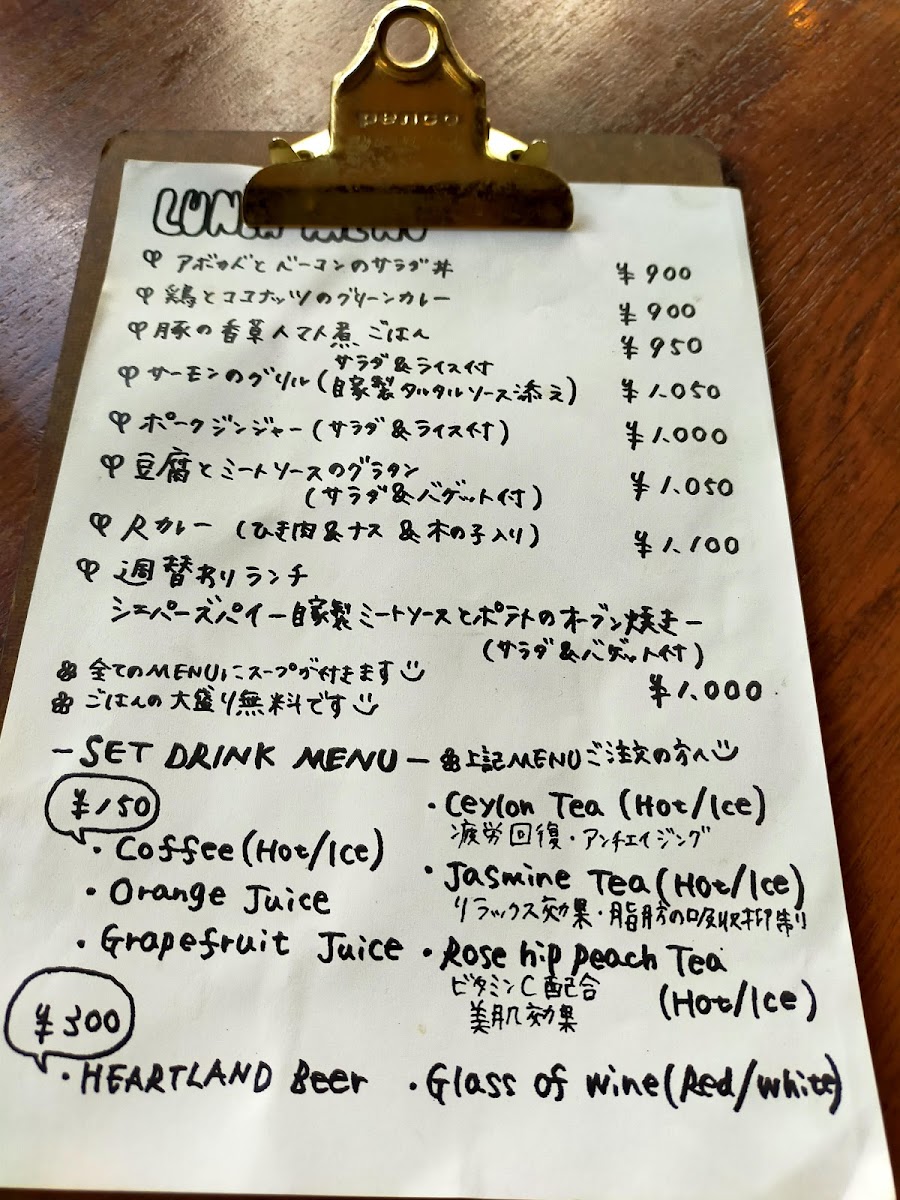 penco
LUNCH MENU
アボカドとベーコンのサラダ丼 ¥900
鶏とココナッツのグリーンカレー ¥900
豚の香草トマト煮ごはん ¥950
サラダ&ライス付
サーモンのグリル(自家製タルタルソース添え) ¥1.050
ポークジンジャー(サラダ&ライス付) ¥1.000
豆腐とミートソースのグラタン
(サラダ&バゲット付) ¥1.050
尺カレー (ひき肉&ナス &木の子入り) ¥1.100
週替わりランチ
シェパーズパイー自家製ミートソースとポテトのオーブン焼きー
(サラダ&バゲット付)
全てのMENUにスープが付きます
¥1.000
ごはんの大盛り無料です
-SET DRINK MENU- 上記MENUご注文の方へ
¥150
・Coffee(Hot/Ice)
・Orange Juice
・Grapefruit Juice
・Ceylon Tea (Hot/Ice)
疲労回復・アンチエイジング
・Jasmine Tea(Hot/Ice)
リラックス効果・脂肪の吸収抑制
・Rose hip peach Tea
ビタミンC配合
(Hot/Ice)
美肌効果
¥300
・HEARTLAND Beer ・Glass of wine(Red/white)